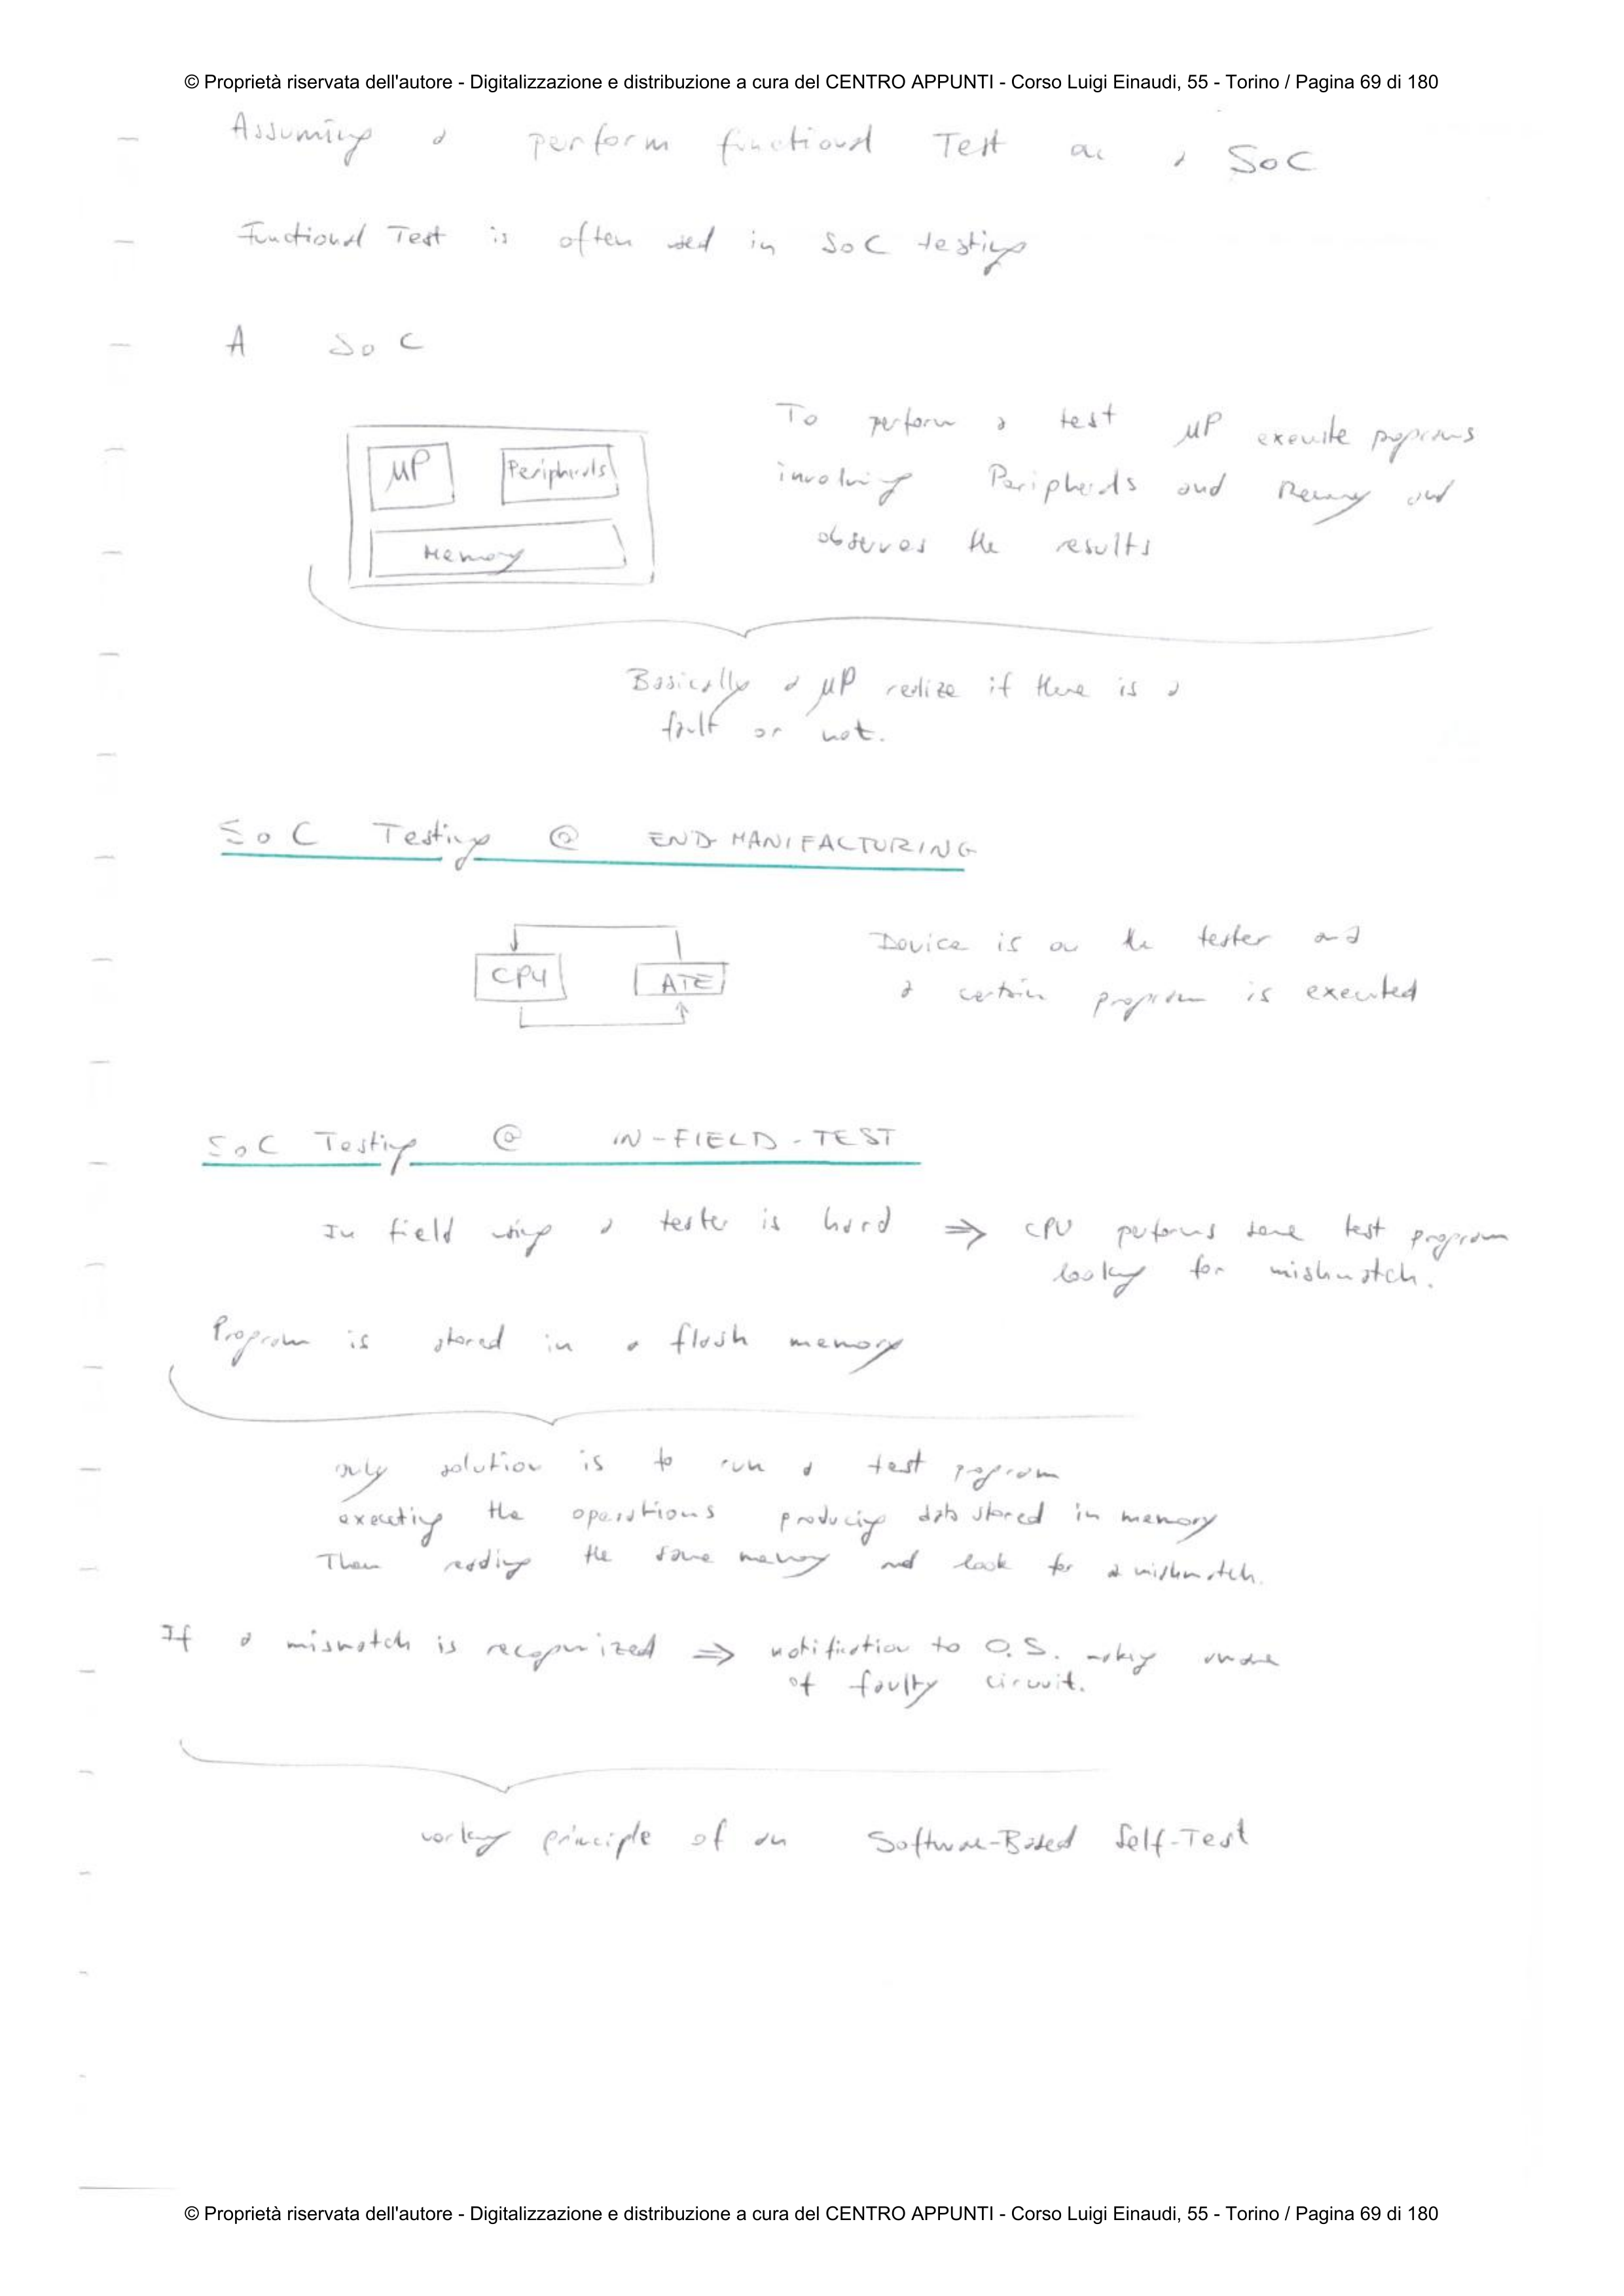 © Proprietà riservata dell'autore - Digitalizzazione e distribuzione a cura del CENTRO APPUNTI - Corso Luigi Einaudi, 55 - Torino / Pagina 69 di 180
Assuming a perform functional Test on a SoC
Functional Test is often used in SoC testing
A SoC
To perform a test μP execute programs
μP Peripherals
involving Peripherals and Memory and
observes the results
Memory
Basically a μP realize if there is a
fault or not.
SoC Testing @ END-MANIFACTURING
Device is on the tester and
CPU ATE
a certain program is executed
SoC Testing @ IN-FIELD-TEST
In field using a tester is hard ⇒ CPU performs some test program
looking for mishmatch.
Program is stored in a flash memory
only solution is to run a test program
executing the operations producing data stored in memory
Then reading the same memory and look for a mishmatch.
If a mismatch is recognized ⇒ notification to O.S. making aware
of faulty circuit.
working principle of an Software-Based Self-Test
© Proprietà riservata dell'autore - Digitalizzazione e distribuzione a cura del CENTRO APPUNTI - Corso Luigi Einaudi, 55 - Torino / Pagina 69 di 180